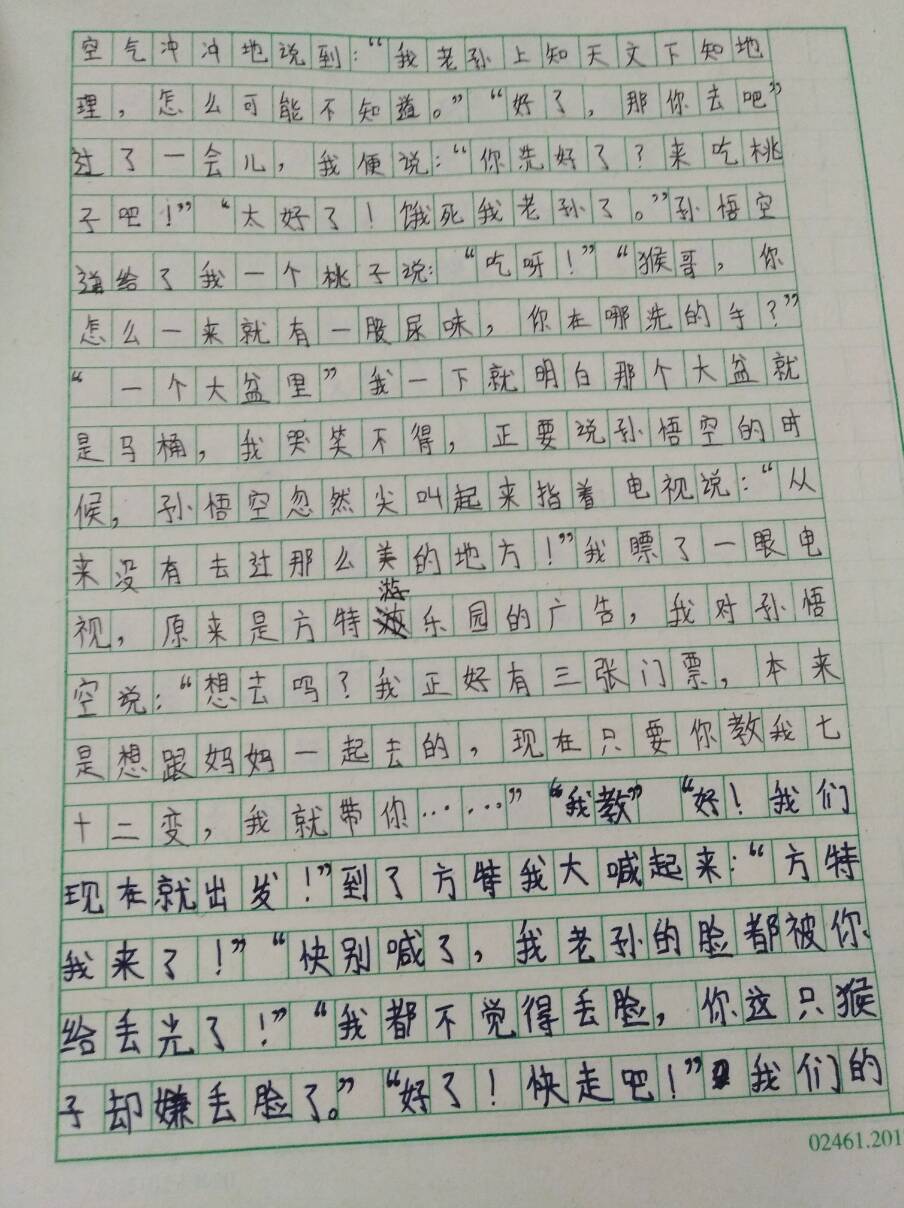 空气冲冲地说到：“我老孙上知天文下知地
理，怎么可能不知道。”“好了，那你去吧”
过了一会儿，我便说：“你洗好了？来吃桃
子吧！”“太好了！饿死我老孙了。”孙悟空
递给了我一个桃子说：“吃呀！”“猴哥，你
怎么一来就有一股尿味，你在哪洗的手？”
“一个大盆里”我一下就明白那个大盆就
是马桶，我哭笑不得，正要说孙悟空的时
候，孙悟空忽然尖叫起来指着电视说：“从
来没有去过那么美的地方！”我瞟了一眼电
视，原来是方特游乐园的广告，我对孙悟
空说：“想去吗？我正好有三张门票，本来
是想跟妈妈一起去的，现在只要你教我七
十二变，我就带你……”“我教”“好！我们
现在就出发！”到了方特我大喊起来：“方特
我来了！”“快别喊了，我老孙的脸都被你
给丢光了！”“我都不觉得丢脸，你这只猴
子却嫌丢脸了。”“好了！快走吧！”我们的
02461.201